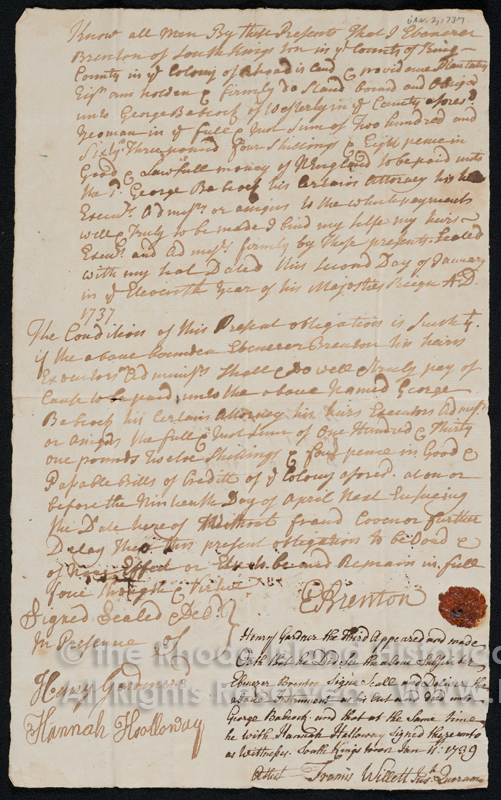 Jan. 2, 1737
Know all Men By these Presents That I Ebenezer
Brenton of South Kingston in ye County of Kings
County in ye Colony of Rhoad island & providence Plantation
Esqr am holden & firmly do Stand bound and Obliged
unto George Babcock of Westerly in ye County aforesd
Yeoman in ye full & Just Sum of Two hundred and
Sixty Three pound four Shillings & Eight pence in
Good & Lawfull money of N England to be paid unto
the sd George Babcock his Certain Attorney his heirs
Execurs Adminrs or assigns to the which payments
well & Truly to be made I bind my selfe my heirs
Execurs and adminrs firmly by These presents Sealed
with my seal Dated this Second Day of January
in ye Eleventh Year of his Majesties Reign A.D.
1737
The Condition of this Present obligation is Such yt
if the above bounden Ebenezer Brenton his heirs
Executors Adminisrs Shall & do well & truly pay or
Cause to be paid unto the above Named George
Babcock his Certain Attorney his heirs Executors adminrs
or asigns the full & Just Sum of One Hundred & Thirty
one pounds Twelve Shillings & four pence in Good &
Passable Bills of Creditt of ye Colony aforesd at or
before the Nineteenth Day of April Next Ensueing
the Date here of Without fraud Coven or further
Delay Then this present obligation to be Void &
of None Effect or Else to be and Remain in full
force Strength & Virtue
Signed Sealed & Deld
In Presence of
EBrenton
Henry Gardner
Hannah Hoolloway
Henry Gardner the third Appeared and made
Oath that he Did See the above Subscriber
Ebenezer Brenton Signe Seall and Deliver the
above Instrument as his act and deed unto
George Babcock and that at the Same time
he with Hannah Holloway Signed thereunto
as Witnesses South Kingstown Jan 11: 1739
Attest Francis Willett Just Quorum
© the Rhode Island Historica
All Rights Reserved. WWW.R